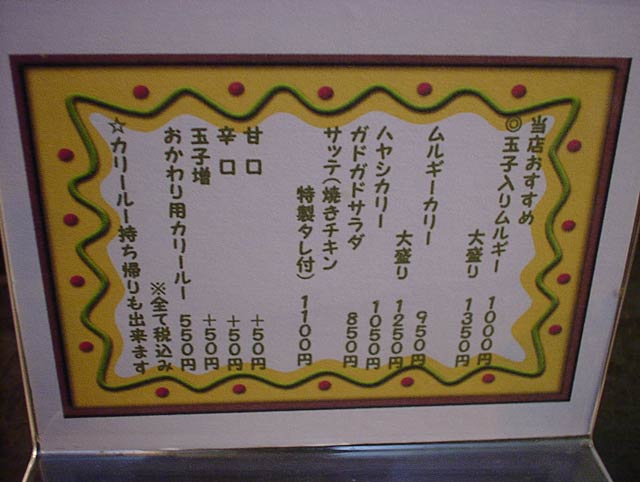 当店おすすめ
◎玉子入りムルギー 1000円
大盛り 1350円
ムルギーカリー 950円
大盛り 1250円
ハヤシカリー 1050円
ガドガドサラダ 850円
サッテ(焼きチキン
特製タレ付) 1100円
甘口 +50円
辛口 +50円
玉子増 +50円
おかわり用カリールー 550円
※全て税込み
☆カリールー持ち帰りも出来ます